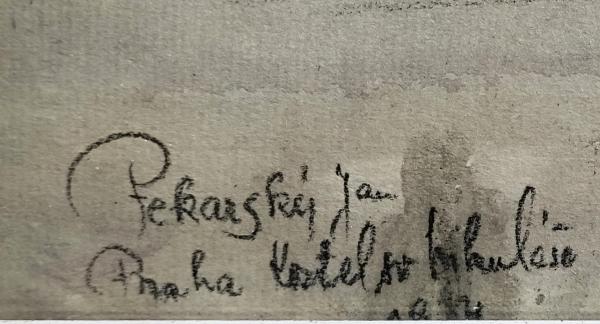 Pekarský Jan
Praha Kostel sv Mikuláše